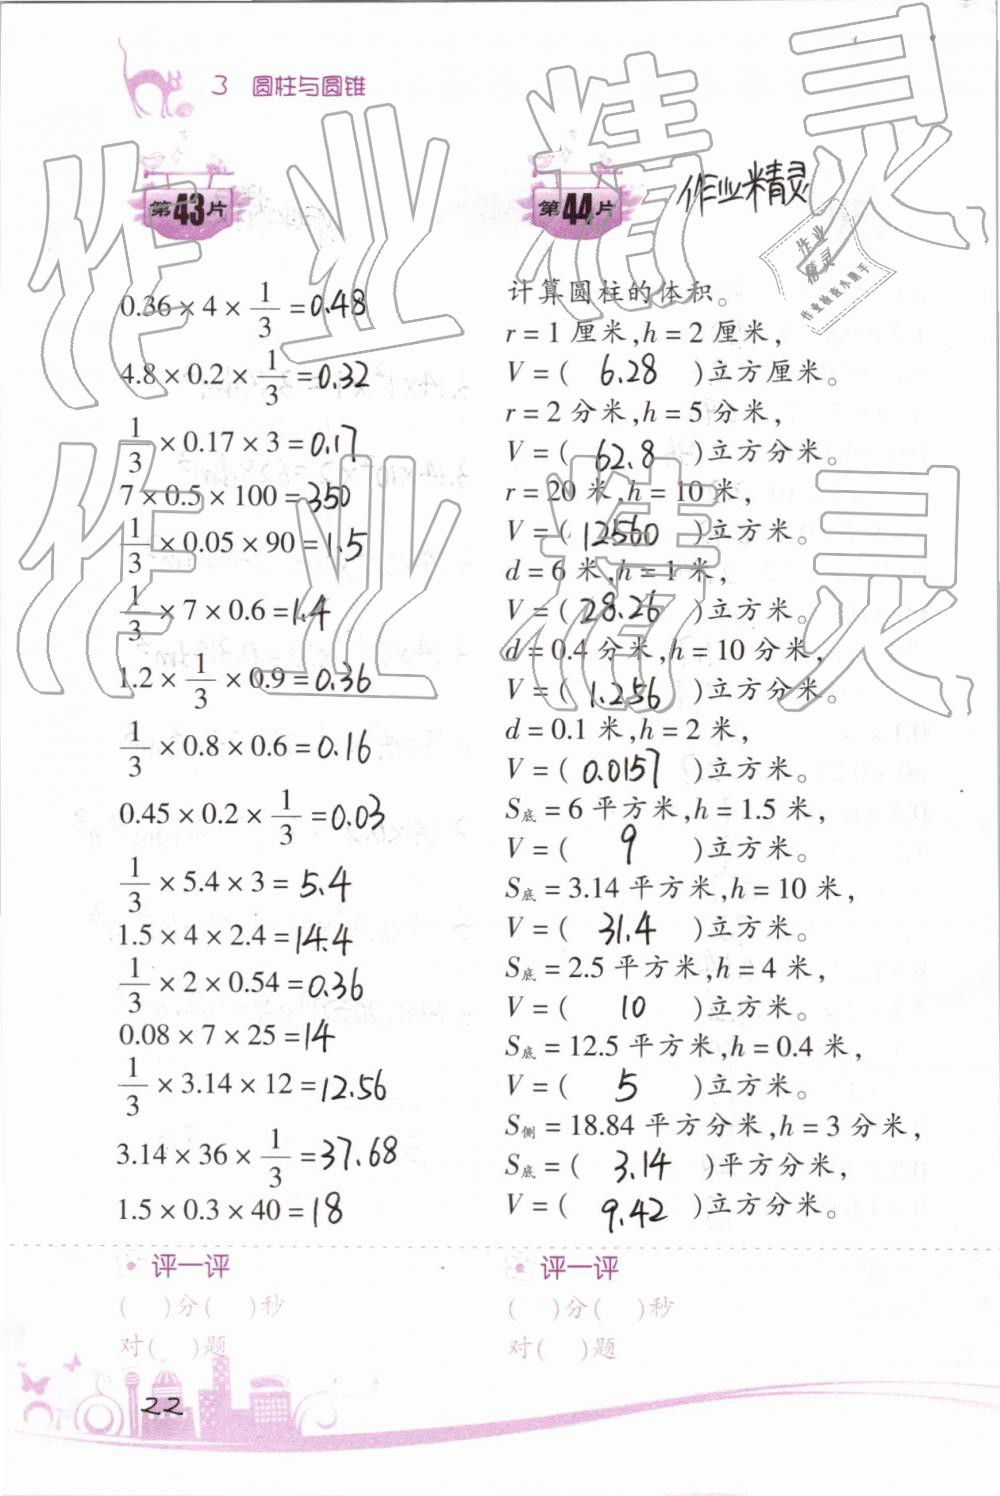 3 圆柱与圆锥
第43片
0.36×4×1/3=0.48
4.8×0.2×1/3=0.32
1/3×0.17×3=0.17
7×0.5×100=350
1/3×0.05×90=1.5
1/3×7×0.6=1.4
1.2×1/3×0.9=0.36
1/3×0.8×0.6=0.16
0.45×0.2×1/3=0.03
1/3×5.4×3=5.4
1.5×4×2.4=14.4
1/3×2×0.54=0.36
0.08×7×25=14
1/3×3.14×12=12.56
3.14×36×1/3=37.68
1.5×0.3×40=18
评一评
( )分( )秒
对( )题
第44片
作业精灵
作业
精灵
作业检查小助手
计算圆柱的体积。
r=1厘米,h=2厘米,
V=( 6.28 )立方厘米。
r=2分米,h=5分米,
V=( 62.8 )立方分米。
r=20米,h=10米,
V=( 12560 )立方米。
d=6米,h=1米,
V=( 28.26 )立方米。
d=0.4分米,h=10分米,
V=( 1.256 )立方分米。
d=0.1米,h=2米,
V=( 0.0157 )立方米。
S底=6平方米,h=1.5米,
V=( 9 )立方米。
S底=3.14平方米,h=10米,
V=( 31.4 )立方米。
S底=2.5平方米,h=4米,
V=( 10 )立方米。
S底=12.5平方米,h=0.4米,
V=( 5 )立方米。
S侧=18.84平方分米,h=3分米,
S底=( 3.14 )平方分米,
V=( 9.42 )立方分米。
评一评
( )分( )秒
对( )题
22
作业精灵
作业精灵